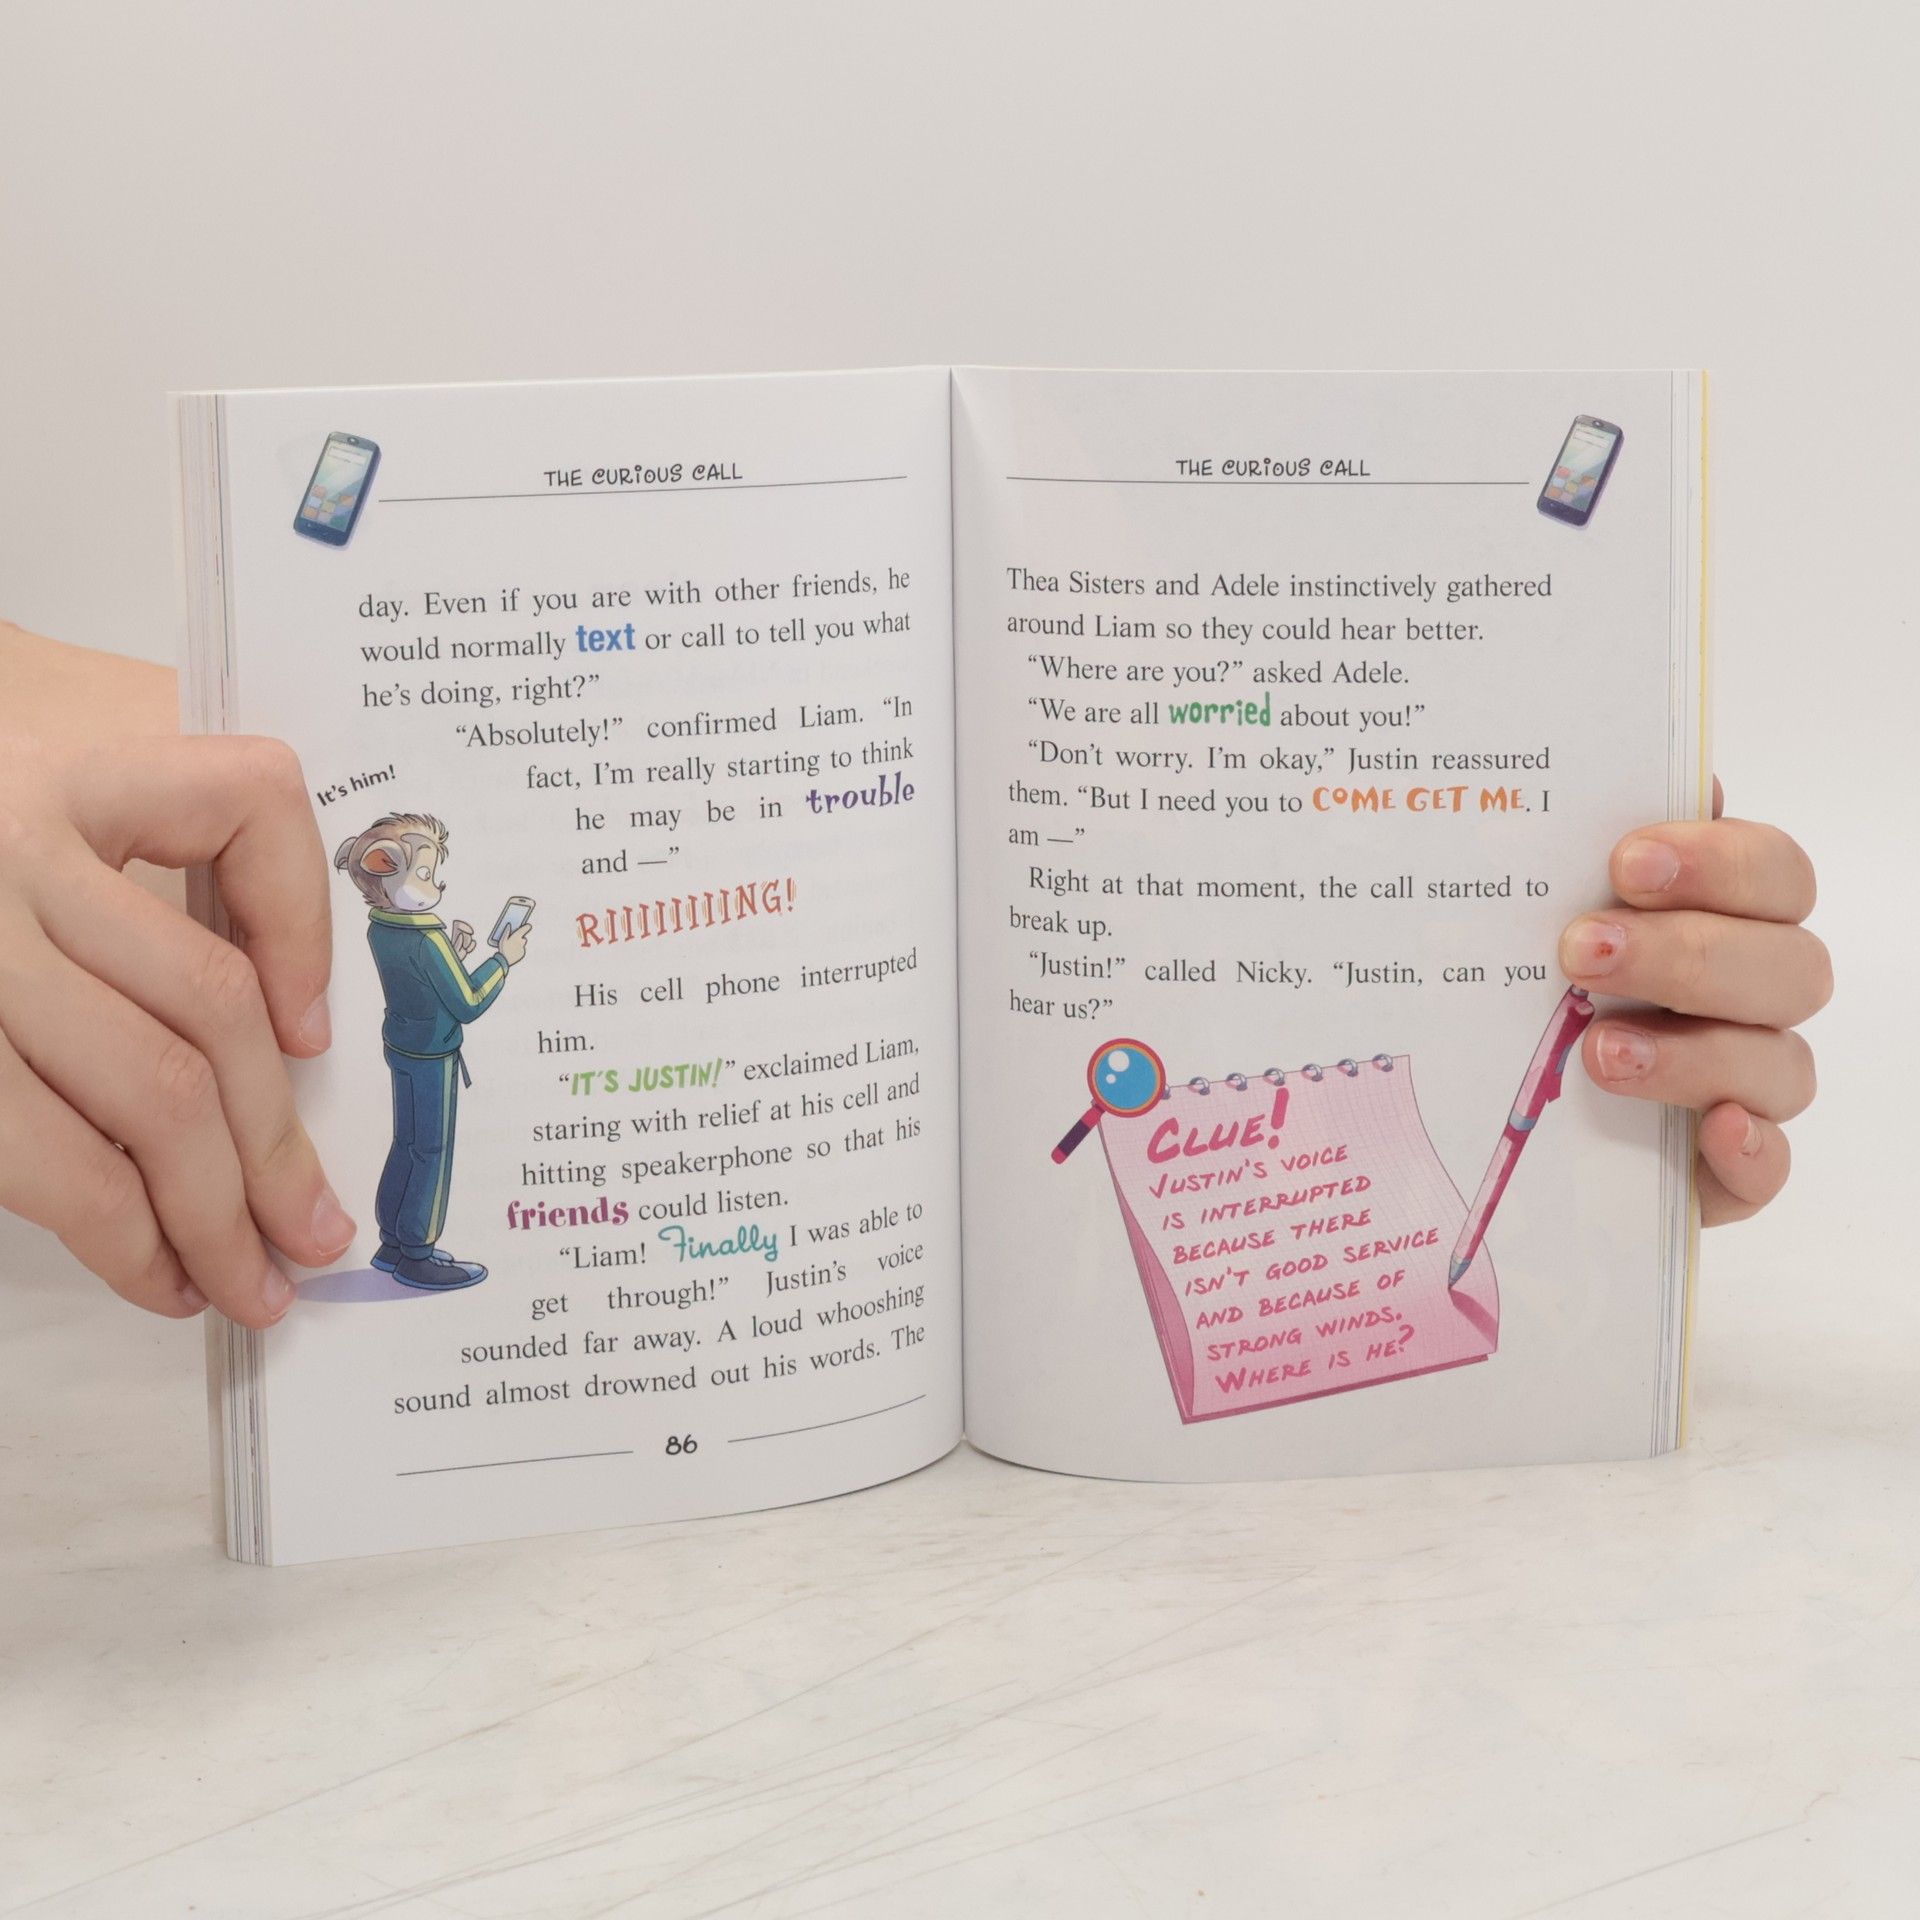 THE CURIOUS CALL
day. Even if you are with other friends, he
would normally text or call to tell you what
he's doing, right?”
“Absolutely!” confirmed Liam. “In
fact, I'm really starting to think
he may be in trouble
and —”
It's him!
RIIIIIIIING!
His cell phone interrupted
him.
“IT'S JUSTIN!” exclaimed Liam,
staring with relief at his cell and
hitting speakerphone so that his
friends could listen.
“Liam! Finally I was able to
get through!” Justin's voice
sounded far away. A loud whooshing
sound almost drowned out his words. The
86
THE CURIOUS CALL
Thea Sisters and Adele instinctively gathered
around Liam so they could hear better.
“Where are you?” asked Adele.
“We are all worried about you!”
“Don't worry. I'm okay,” Justin reassured
them. “But I need you to COME GET ME. I
am —”
Right at that moment, the call started to
break up.
“Justin!” called Nicky. “Justin, can you
hear us?”
CLUE!
JUSTIN'S VOICE
IS INTERRUPTED
BECAUSE THERE
ISN'T GOOD SERVICE
AND BECAUSE OF
STRONG WINDS.
WHERE IS HE?